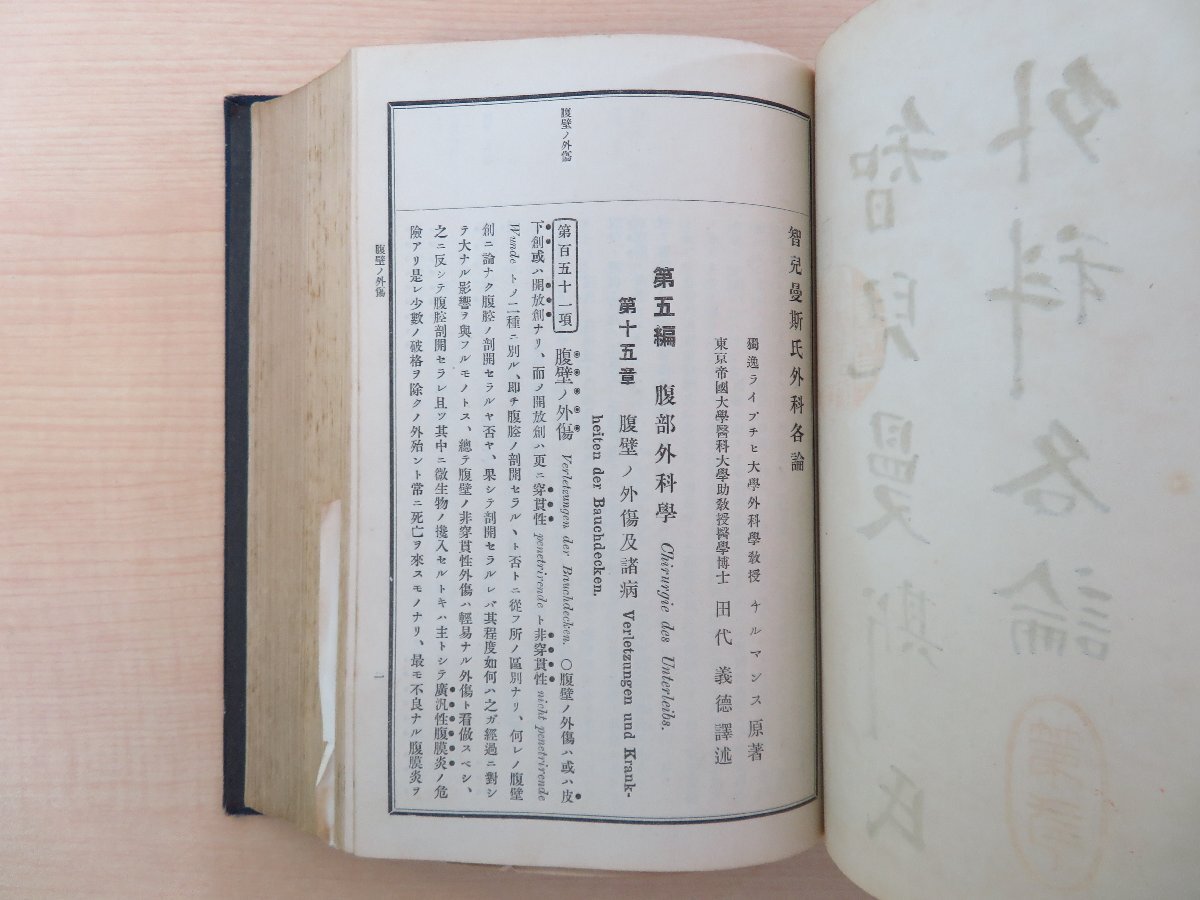 外科各論
智兒曼斯氏
智兒曼斯氏外科各論
獨逸ライプチヒ大學外科學敎授 チルマンス 原著
東京帝國大學醫科大學助敎授醫學博士 田代義德 譯述
第五編 腹部外科學 Chirurgie des Unterleibs.
第十五章 腹壁ノ外傷及諸病 Verletzungen und Krank-
heiten der Bauchdecken.
腹壁ノ外傷
第百五十一項 腹壁ノ外傷 Verletzungen der Bauchdecken. ○腹壁ノ外傷ハ或ハ皮
下創或ハ開放創ナリ、而ノ開放創ハ更ニ穿貫性 penetrirende ト非穿貫性 nicht penetrirende
Wunde トノ二種ニ別ル、即チ腹腔ノ剖開セラルヽト否トニ從フ所ノ區別ナリ、何レノ腹壁
創ニ論ナク腹腔ノ剖開セラルヤ否ヤ、果シテ剖開セラルレバ其程度如何ハ之ガ經過ニ對シ
テ大ナル影響ヲ與フルモノトス、總テ腹壁ノ非穿貫性外傷ハ輕易ナル外傷ト看做スベシ、
之ニ反シテ腹腔剖開セラレ且ツ其中ニ微生物ノ攙入セルトキハ主トシテ廣汎性腹膜炎ノ危
險アリ是レ少數ノ破格ヲ除クノ外殆ント常ニ死亡ヲ來スモノナリ、最モ不良ナル腹膜炎ヲ
腹壁ノ外傷
一